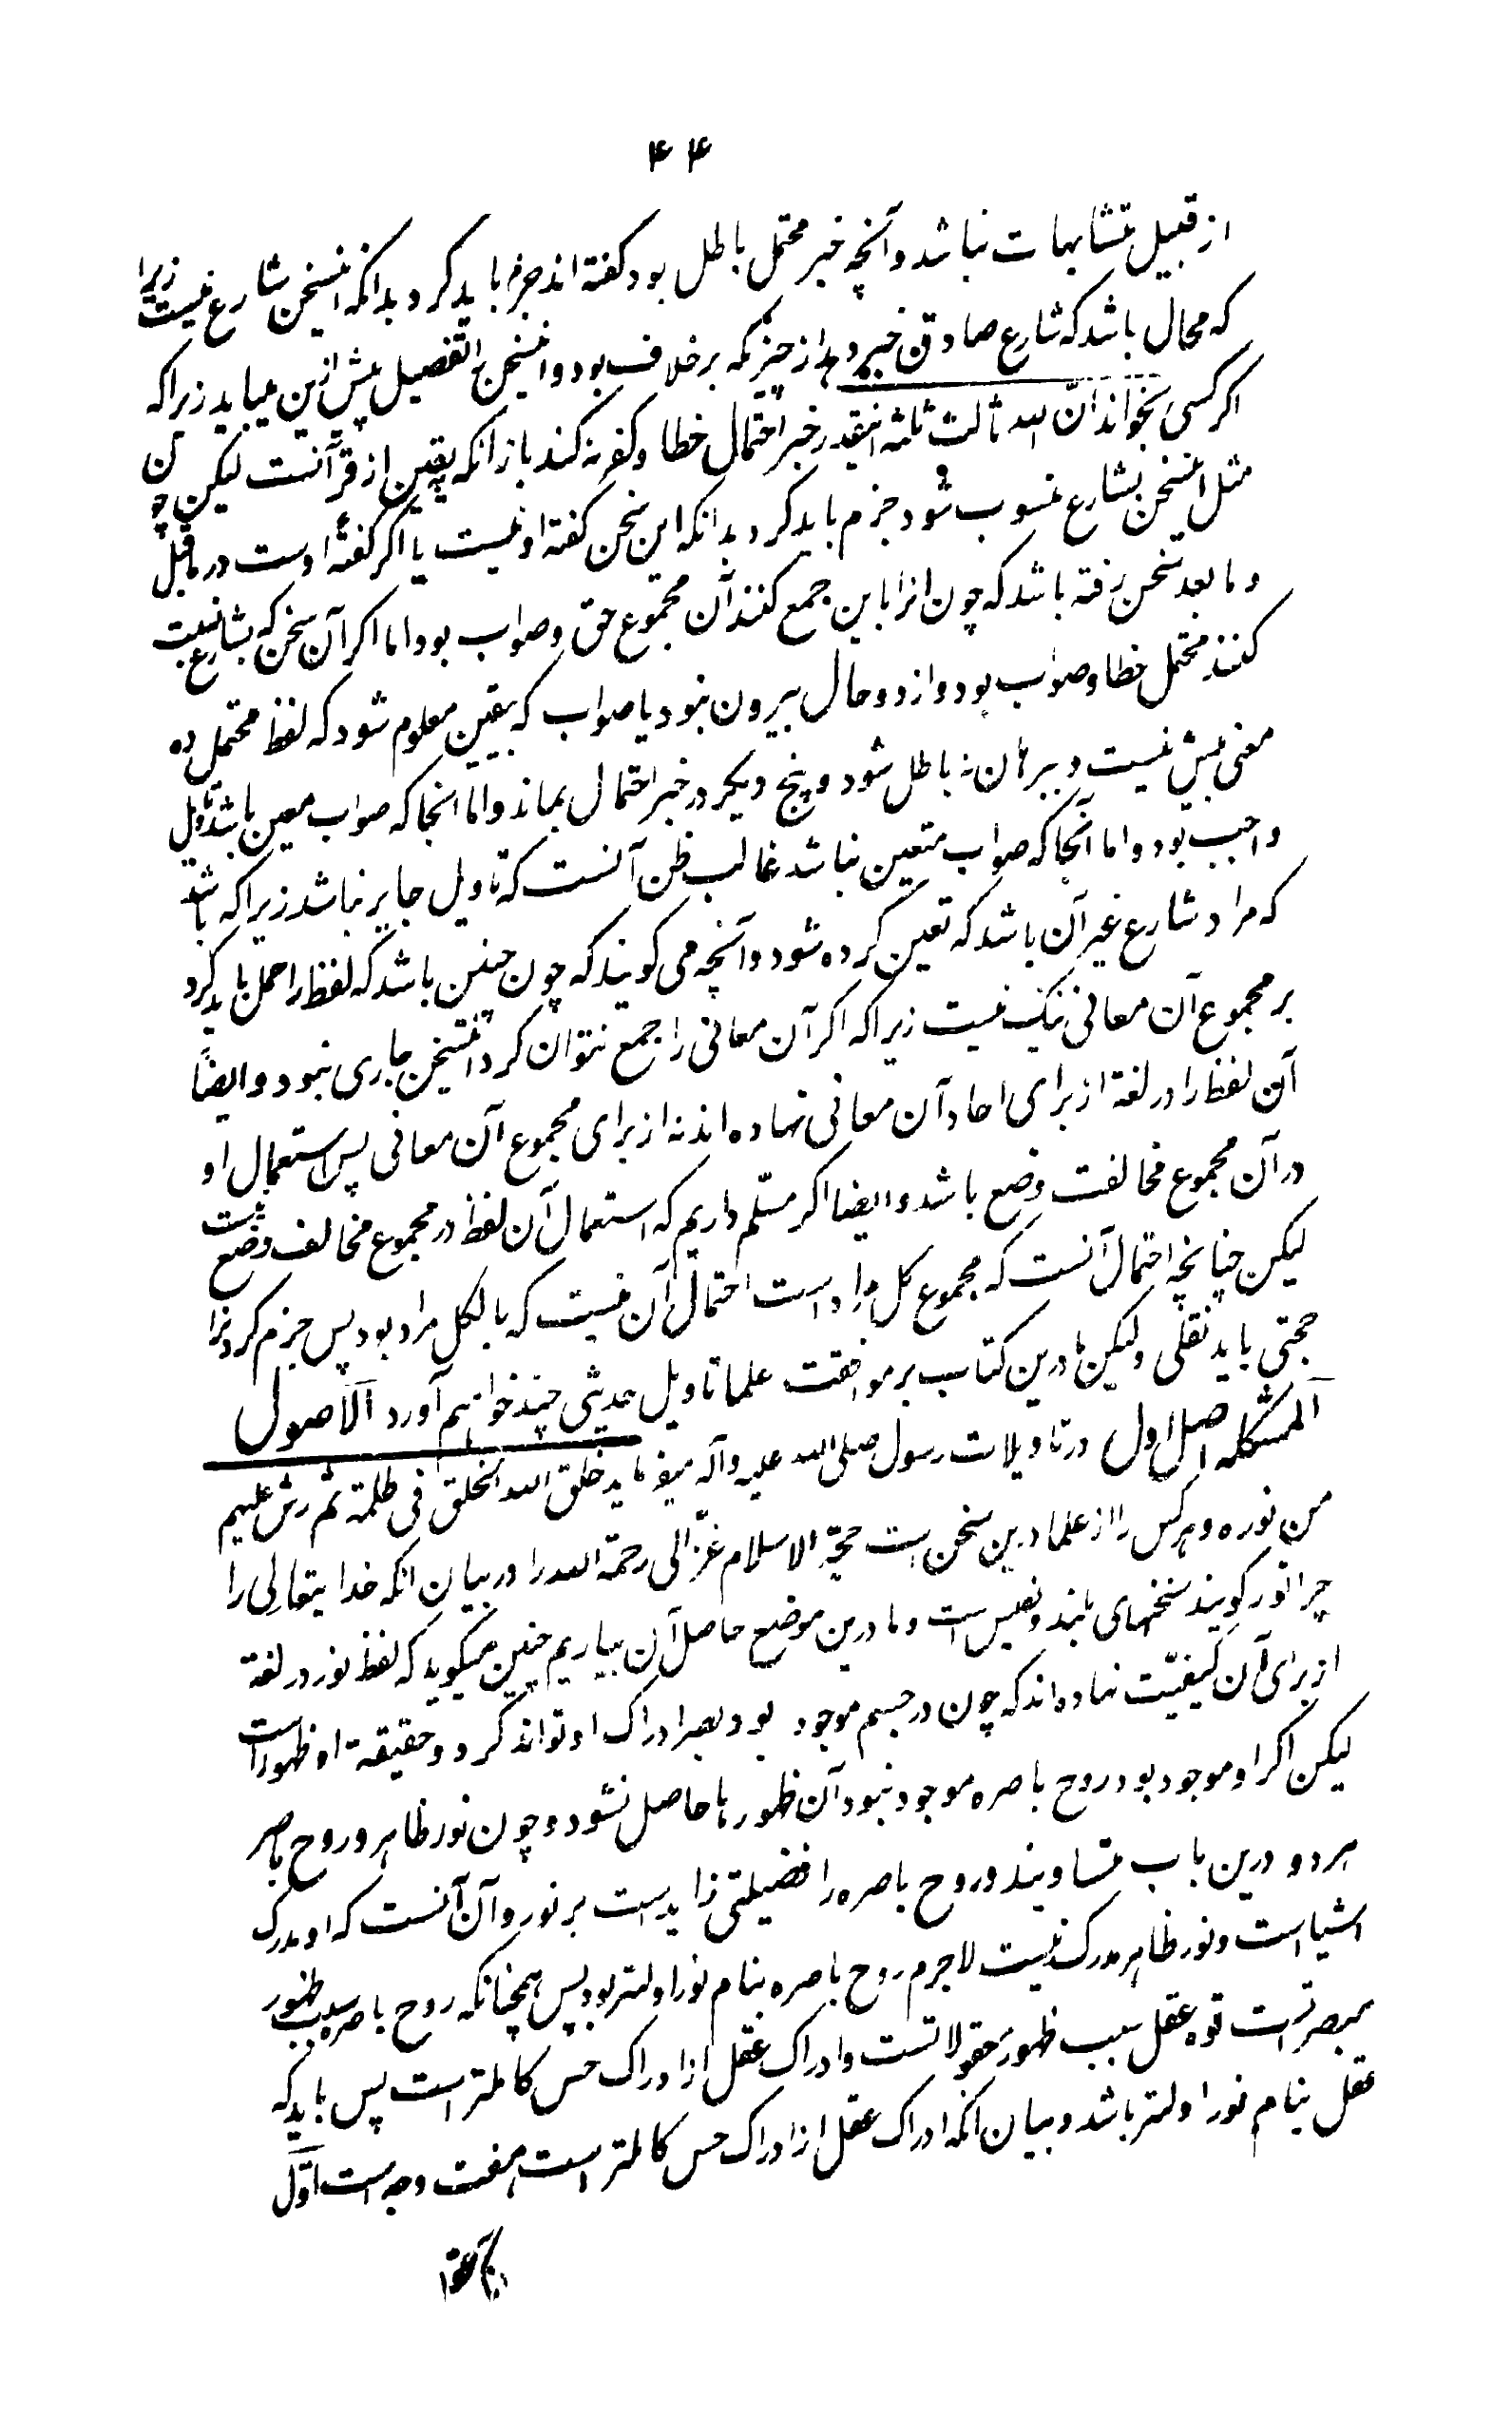 ۴۴
از قبیل متشابهات نباشد و آنچه خبر محتمل باطل بود گفته‌اند جزم باید کرد بدانکه اینسخن شارع نیست زیرا
که محال باشد که شارع صادق خبر دهد از چیزیکه برخلاف بود و اینسخن را تفصیل بیش ازین میباید زیرا که
اگر کسی بخواند ان الله ثالث ثلثه اینقدر خبر احتمال خطا و کفر نه کند باز آنکه یقین از قرآنست لیکن چون
مثل اینسخن بشارع منسوب شود جزم باید کرد بدانکه این سخن گفته او نیست یا اگر گفتهٔ اوست در ماقبل
و ما بعد سخن رفته باشد که چون انرا باین جمع کنند آن مجموع حق و صواب بود اما اگر آن سخن که بشارع نسبت
کنند محتمل خطا و صواب بود و از دو حال بیرون نبود یا صواب که بیقین معلوم شود که لفظ محتمل ده
معنی بیش نیست و ببرهان نه باطل شود و پنج دیگر در خبر احتمال بماند و اما انجا که صواب معین باشد تاویل
واجب بود و اما آنجا که صواب متعین نباشد غالب ظن آنست که تاویل جایز نباشد زیرا که باشد
که مراد شارع غیر آن باشد که تعین کرده شود و آنچه می کویند که چون چنین باشد که لفظ را حمل باید کرد
بر مجموع آن معانی نیک نیست زیرا که اگر آن معانی را جمع نتوان کرد اینسخن جاری نبود و ایضاً
آن لفظ را در لغة از برای احاد آن معانی نهاده‌اند نه از برای مجموع آن معانی پس استعمال او
در آن مجموع مخالفت وضع باشد و ایضا اگر مسلّم داریم که استعمال آن لفظ در مجموع مخالف وضع نیست
لیکن چنانچه احتمال آنست که مجموع کل مراد است احتمال آن نیست که بالکل مراد بود پس جزم کردنرا
حجتی باید نقلی ولیکن ما درین کتاب بر موافقت علما تاویل حدیثی چند خواهیم آورد الاصول
المشکله اصل اول در تاویلات رسول صلی الله علیه و آله میفرماید خلق الله الخلق فی ظلمة ثم رش علیهم
من نوره و هر کس را از علما درین سخن است حجّة الاسلام غزّالی رحمة الله را در بیان انکه خدایتعالی را
چرا نور کویند سخنهای بلند و نفیس است و ما درین موضع حاصل آن بیاریم چنین میگوید که لفظ نور در لغة
از برای آن کیفیّت نهاده‌اند که چون در جسم موجود بود بصر ادراک او تواند کرد و حقیقة او ظهور است
لیکن اگر او موجود بود روح باصره موجود نبود آن ظهور ها حاصل نشود و چون نور ظاهر و روح باصر
هر دو درین باب متساویند و روح باصره را فضیلتی زاید است بر نور و آن آنست که او مدرک
اشیا است و نور ظاهر مدرک نیست لاجرم روح باصره بنام نور اولیتر بود پس همچنانکه روح باصره سبب ظهور
مبصرتست قوه عقل سبب ظهور معقولاتست و ادراک عقل از ادراک حس کاملتر است پس باید که
عقل بنام نور اولیتر باشد و بیان انکه ادراک عقل از ادراک حس کاملتر است هفت وجه است اوّل